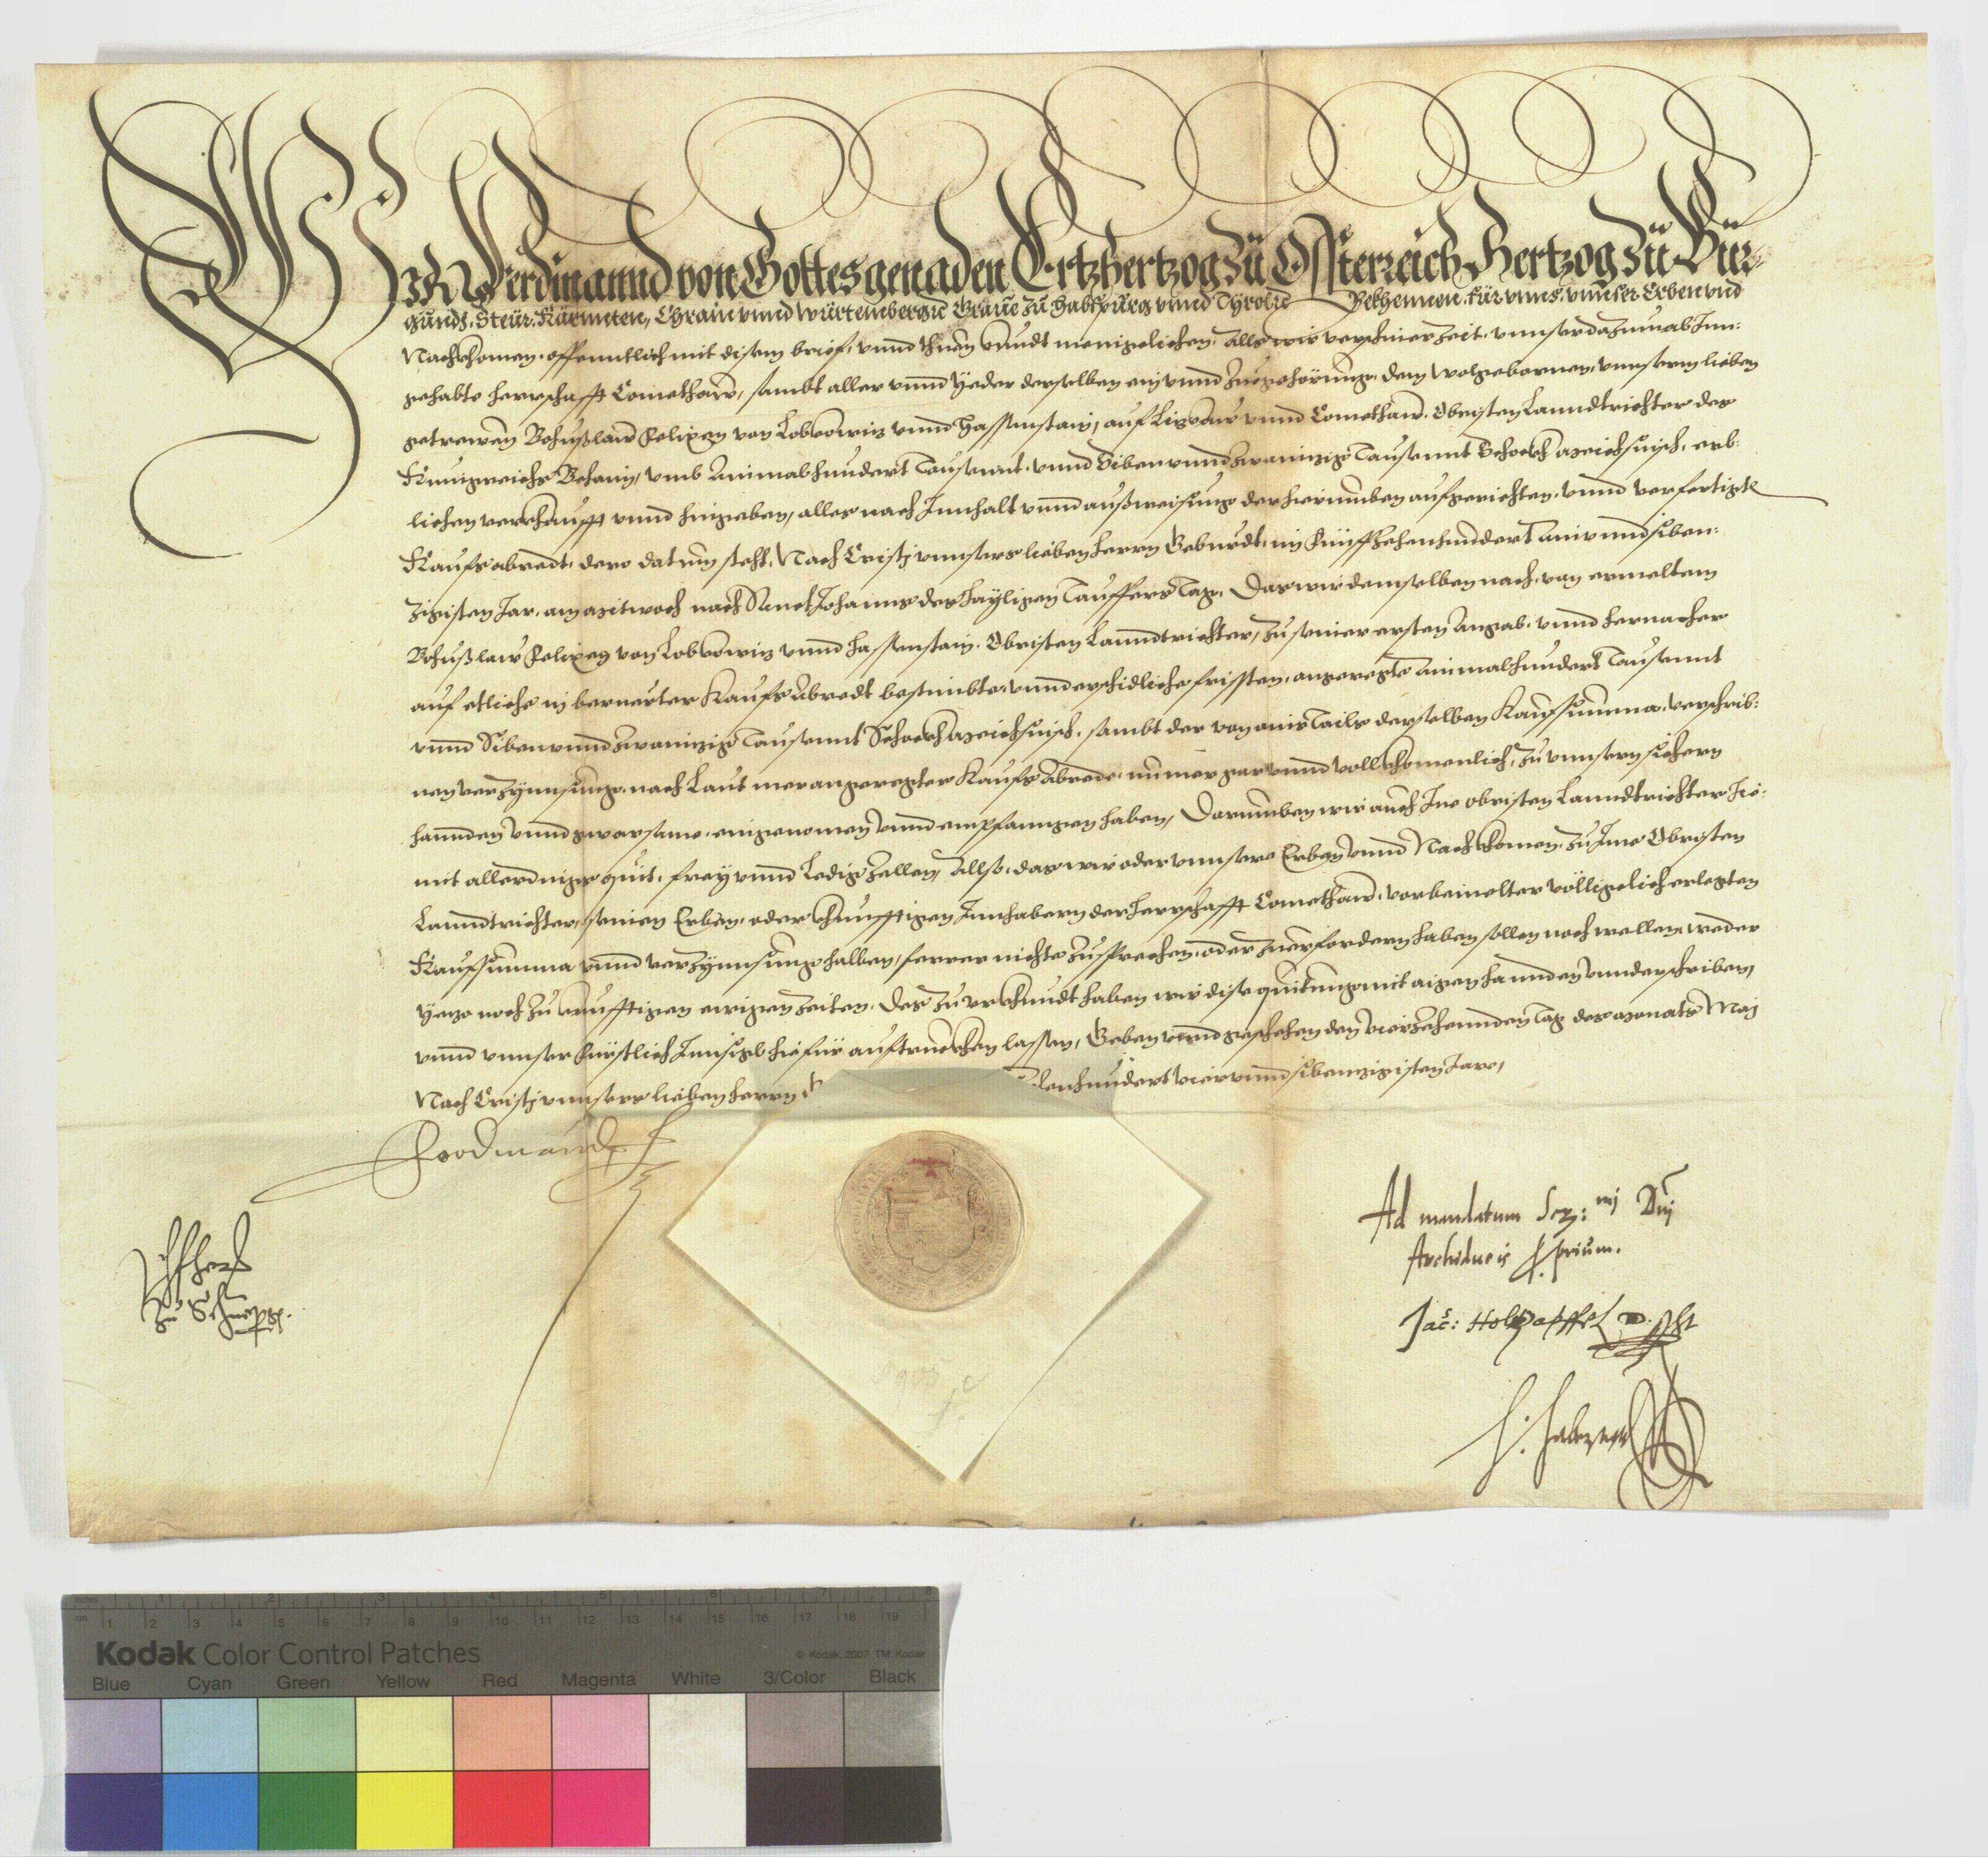 Wir Ferdinannd von Gottes genaden Ertzhertzog zů Össterreich Hertzog zů Bur-
gundj, Steür, Kärnnten, Chrain vnnd Würtemberg &c Graue zů Habspurg vnnd Tyrol &c Bekhennen für vnns, vnnser Erben vnd
Nachkhomen, offenntlich mit disem brief, vnnd thuen khundt menigelichen, Alls wir verschiner Zeit, vnnser dazumal Inn-
gehabte Herrschafft Comethaw, sambt aller vnnd yeder derselben ein vnnd Zuegehörunng, dem Wolgebornen, vnnserm lieben
getrewen Bohußlaw Felixen von Lobkowiz vnnd Hassenstain, auf Lizkaw vnnd Comethaw, Obristen Lanndtrichter des
Künigreichs Behaim, vmb Ainmalhundert Tausennt, vnnd Siben vnnd zwainzig Tausennt Schockh meichsnisch, erb-
lichen verkhaufft vnnd hingeben, alles nach Innhalt vnnd außweisung der hierumben aufgerichten, vnnd verfertigte
Kaufs abredt, dero datum steht, Nach Cristj vnnsers lieben herrn Geburdt, im Fünffzehenhundert Ain vnnd siben-
zigisten Jar, am Mitwoch nach Sannct Johanns des Hayligen Tauffers Tag, Das wir demselben nach, von ermeltem
Bohußlaw Felixen von Lobkowiz vnnd Hassenstain, Obristen Lanndtrichter, zu seiner ersten Angab, vnnd hernacher
auf etliche in berüerter Kaufs Abredt bestimbte, vnnderschidliche frissten, angeregte Ainmalhundert Tausennt
vnnd Siben vnnd zwainzig Tausennt Schockh Meichsnisch, sambt der von ains Tails derselben Kaufsumma, verschrib-
nen verzynnsung, nach Laut mer angeregter Kaufs Abrede, nunmer gar vnnd vollkhomenlich, zu vnnsern sichern
hannden vnnd gwarsame, eingenomen vnnd emphanngen haben, Darumben wir auch Ine obristen Lanndtrichter hie-
mit allerdings quit, frey vnnd Ledig zellen, Allso, das wir oder vnnsere Erben vnnd Nachkhomen, zu Ime Obristen
Lanndtrichter, seinen Erben, oder khunfftigen Innhabern der Herrschafft Comethaw, vorbemelter völligelich erlegten
Kaufsumma vnnd verzynnsung halben, ferrer nichts zusprechen, oder zuerfordern haben sollen noch wellen, weder
yezo noch zu khunfftigen ewigen Zeiten, Des zu vrkhundt haben wir dise quitung mit aigen hannden vnnderschriben,
vnnd vnnser Fürstlich Innsigl hiefür auftruckhen lassen, Geben vnnd geschehen den vierzehennden Tag des Monats Maj
Nach Cristj vnnsers lieben herrn henhundert vier vnnd sibenzigisten Jare,
Ferdinannd
Ad mandatum Ser:mi Dnj
Archiducis pprium.
Jac: Holtzapffel D. sst
zu Schneperg
Kodak Color Control Patches
© Kodak, 2007 TM: Kodak
Blue Cyan Green Yellow Red Magenta White 3/Color Black